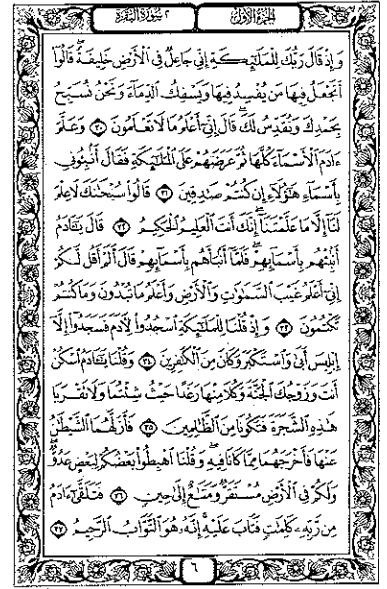 الجزء الأول
٢ سورة البقرة
وَإِذْ قَالَ رَبُّكَ لِلْمَلَٰٓئِكَةِ إِنِّى جَاعِلٌ فِى ٱلْأَرْضِ خَلِيفَةً ۖ قَالُوٓا۟
أَتَجْعَلُ فِيهَا مَن يُفْسِدُ فِيهَا وَيَسْفِكُ ٱلدِّمَآءَ وَنَحْنُ نُسَبِّحُ
بِحَمْدِكَ وَنُقَدِّسُ لَكَ ۖ قَالَ إِنِّىٓ أَعْلَمُ مَا لَا تَعْلَمُونَ ٣٠ وَعَلَّمَ
ءَادَمَ ٱلْأَسْمَآءَ كُلَّهَا ثُمَّ عَرَضَهُمْ عَلَى ٱلْمَلَٰٓئِكَةِ فَقَالَ أَنۢبِـُٔونِى
بِأَسْمَآءِ هَٰٓؤُلَآءِ إِن كُنتُمْ صَٰدِقِينَ ٣١ قَالُوا۟ سُبْحَٰنَكَ لَا عِلْمَ
لَنَآ إِلَّا مَا عَلَّمْتَنَآ ۖ إِنَّكَ أَنتَ ٱلْعَلِيمُ ٱلْحَكِيمُ ٣٢ قَالَ يَٰٓـَٔادَمُ
أَنۢبِئْهُم بِأَسْمَآئِهِمْ ۖ فَلَمَّآ أَنۢبَأَهُم بِأَسْمَآئِهِمْ قَالَ أَلَمْ أَقُل لَّكُمْ
إِنِّىٓ أَعْلَمُ غَيْبَ ٱلسَّمَٰوَٰتِ وَٱلْأَرْضِ وَأَعْلَمُ مَا تُبْدُونَ وَمَا كُنتُمْ
تَكْتُمُونَ ٣٣ وَإِذْ قُلْنَا لِلْمَلَٰٓئِكَةِ ٱسْجُدُوا۟ لِءَادَمَ فَسَجَدُوٓا۟ إِلَّآ
إِبْلِيسَ أَبَىٰ وَٱسْتَكْبَرَ وَكَانَ مِنَ ٱلْكَٰفِرِينَ ٣٤ وَقُلْنَا يَٰٓـَٔادَمُ ٱسْكُنْ
أَنتَ وَزَوْجُكَ ٱلْجَنَّةَ وَكُلَا مِنْهَا رَغَدًا حَيْثُ شِئْتُمَا وَلَا تَقْرَبَا
هَٰذِهِ ٱلشَّجَرَةَ فَتَكُونَا مِنَ ٱلظَّٰلِمِينَ ٣٥ فَأَزَلَّهُمَا ٱلشَّيْطَٰنُ
عَنْهَا فَأَخْرَجَهُمَا مِمَّا كَانَا فِيهِ ۖ وَقُلْنَا ٱهْبِطُوا۟ بَعْضُكُمْ لِبَعْضٍ عَدُوٌّ ۖ
وَلَكُمْ فِى ٱلْأَرْضِ مُسْتَقَرٌّ وَمَتَٰعٌ إِلَىٰ حِينٍ ٣٦ فَتَلَقَّىٰٓ ءَادَمُ
مِن رَّبِّهِۦ كَلِمَٰتٍ فَتَابَ عَلَيْهِ ۚ إِنَّهُۥ هُوَ ٱلتَّوَّابُ ٱلرَّحِيمُ ٣٧
٦